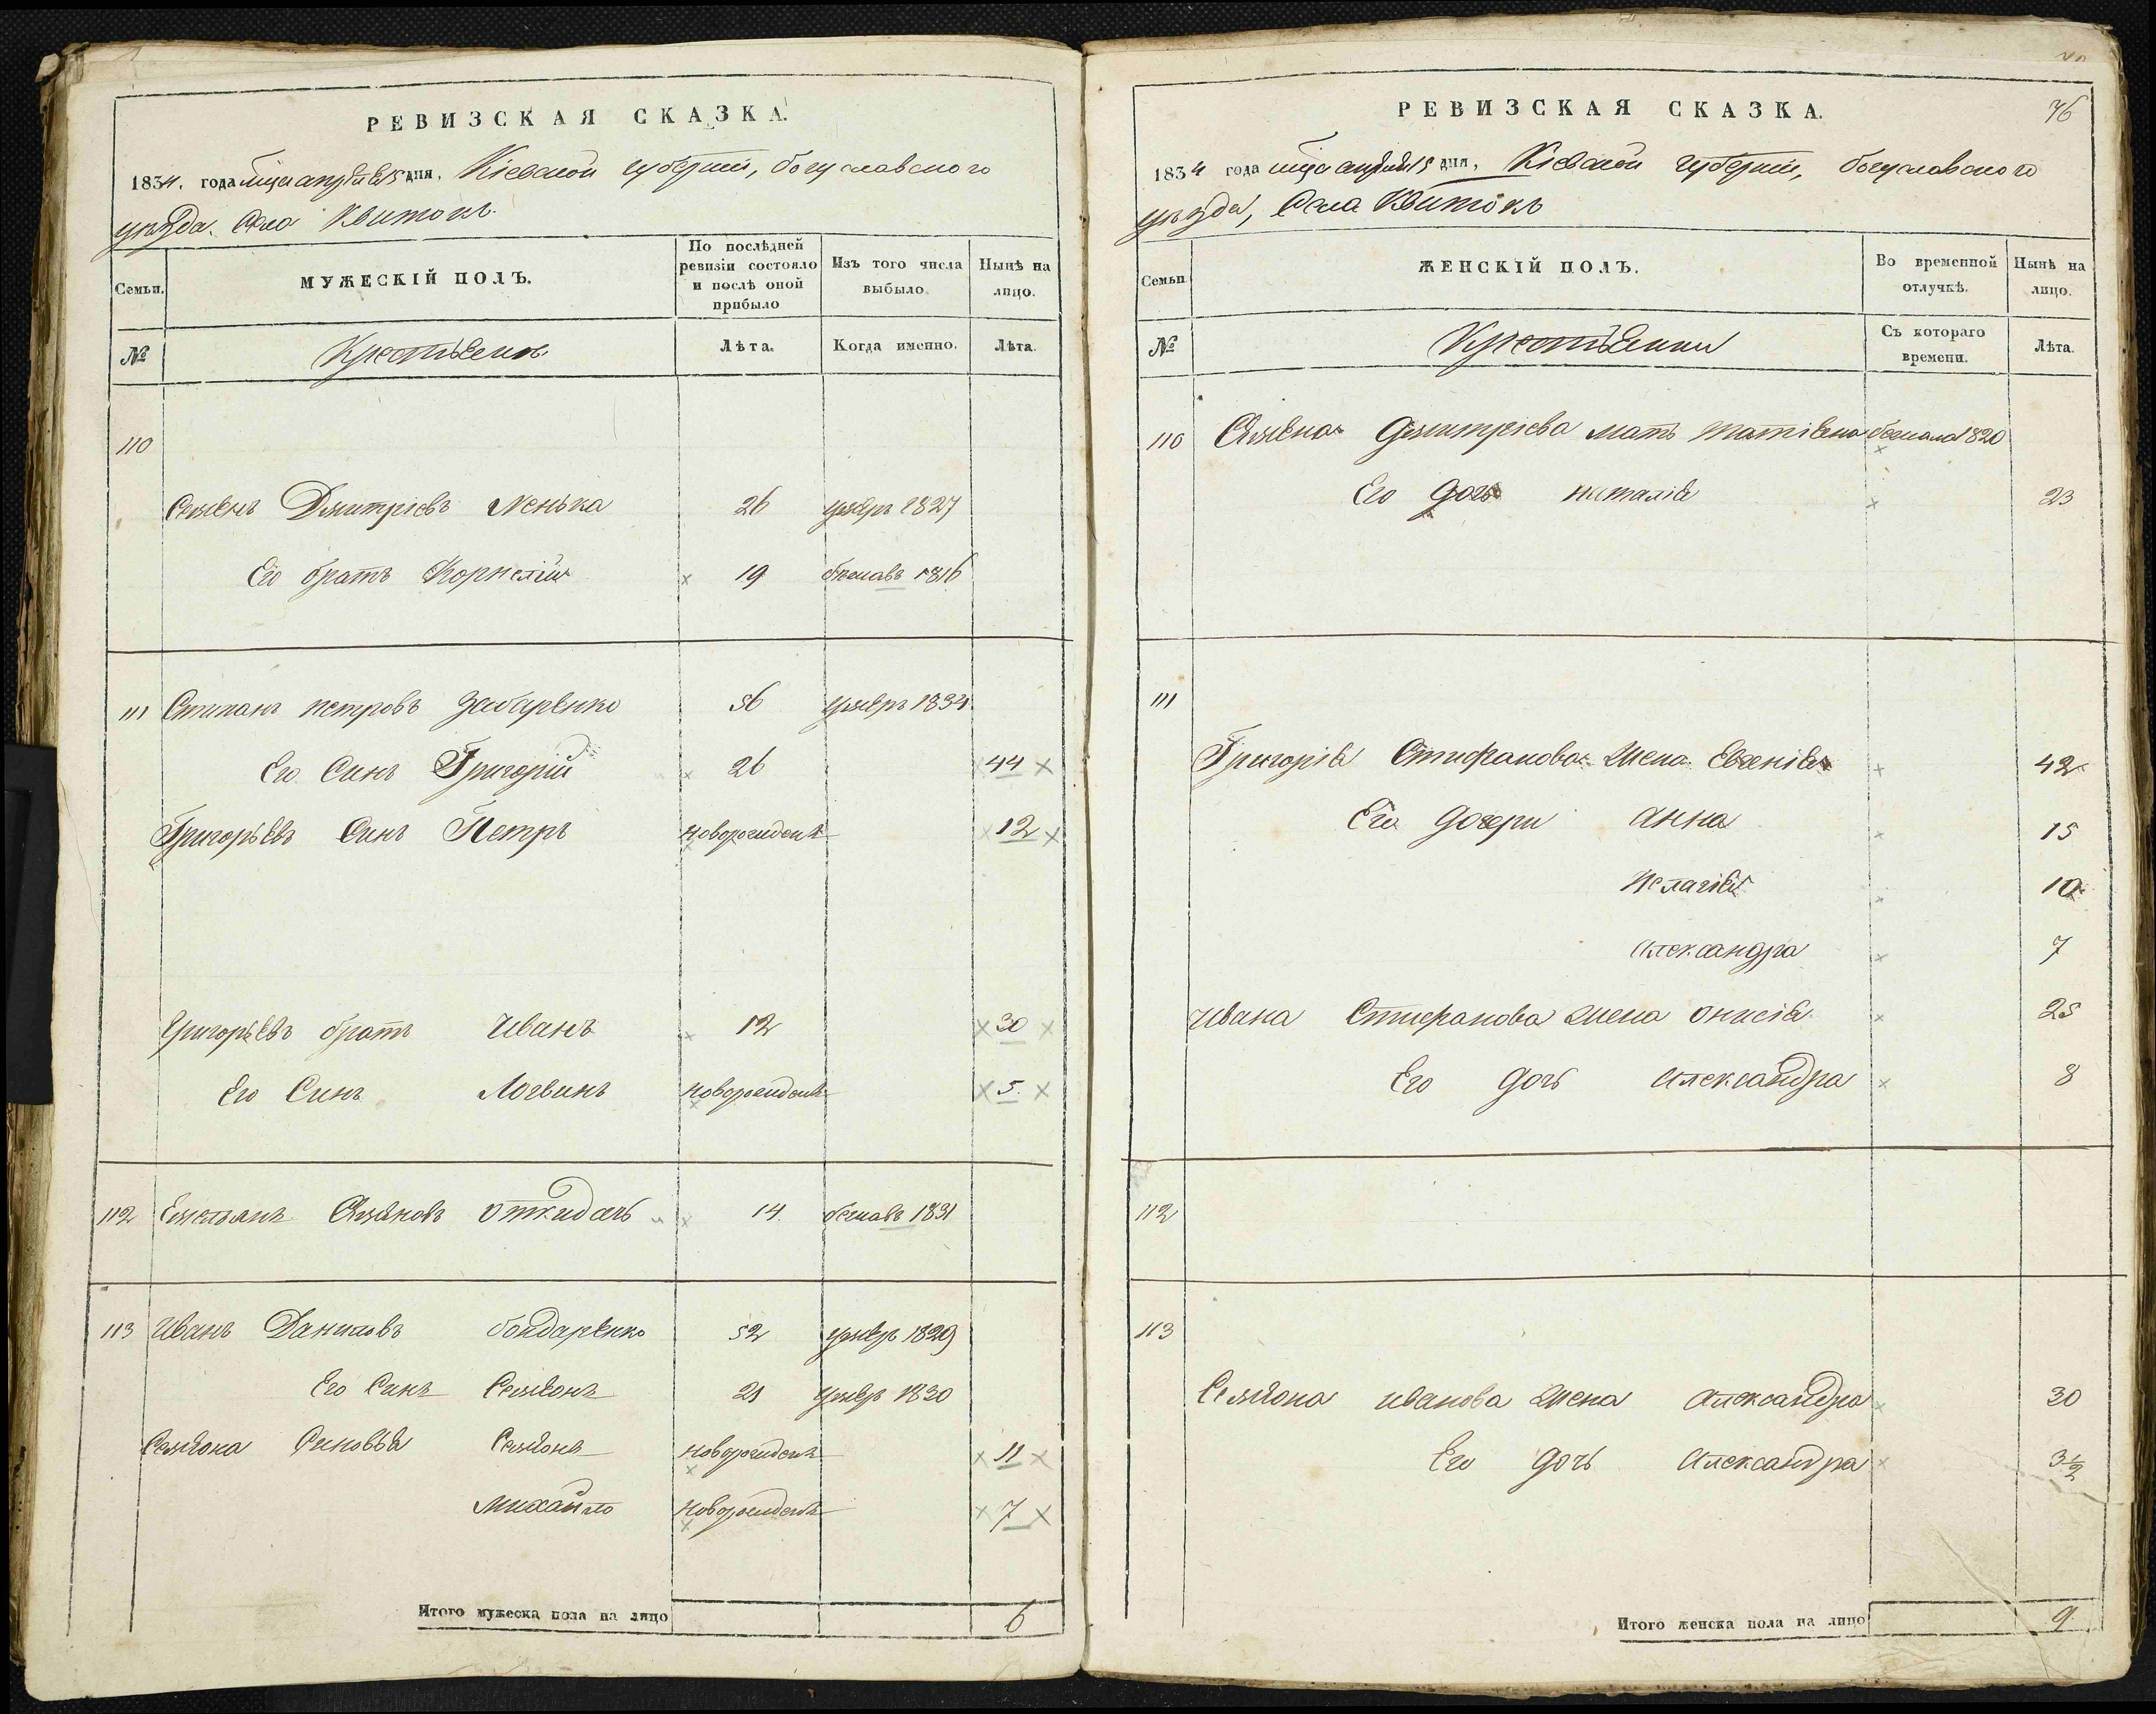 РЕВИЗСКАЯ СКАЗКА.
1834. года апреля 15 дня, Кіевской губерніи, богуславского
уѣзда. Села Квитокъ.
Семьи.
МУЖЕСКІЙ ПОЛЪ.
По послѣдней ревизіи состояло и послѣ оной прибыло
Изъ того числа выбыло
Ныиѣ на лицо.
№
Крестьянъ
Лѣта.
Когда именно.
Лѣта.
110
Семенъ Дмитріевъ Ненька 26 умеръ 1827
Его братъ Корнелій 19 бѣжавъ 1816
111 Стипанъ петровъ 56 умеръ 1834
Его Синъ Григорій 26 44
Григорьевъ Синъ Петръ новорожденъ 12
Григорьевъ братъ Иванъ 12 30
Его Синъ Логвинъ новорожденъ 5
112 Емельянъ откидачъ 14 бежавъ 1831
113 Иванъ Даниловъ бондаренко 52 умеръ 1829
Его Синъ Семионъ 21 умеръ 1830
Семиона Синовья Семионъ новорожденъ 11
михайло новорожденъ 7
Итого мужеска пола на лицо 6
76
РЕВИЗСКАЯ СКАЗКА.
1834 года апреля 15 дня, Кіевской губерніи, богуславского
уѣзда, Села Квитокъ
Семьи
ЖЕНСКІЙ ПОЛЪ.
Во временной отлучкѣ.
Нынѣ на лицо.
№
Крестьянки
Съ котораго времени.
Лѣта.
110 Семена Дмитріева мать бежала 1820
Его дочь наталія 23
111
Григорія Стифанова Жена Евгенія 42
Его дочери анна 15
Пелагія 10
александра 7
Ивана Стифанова Жена онисія 25
Его дочь александра 8
112
113
Семиона иванова Жена александра 30
Его дочь александра 3½
Итого женска пола на лицо 9